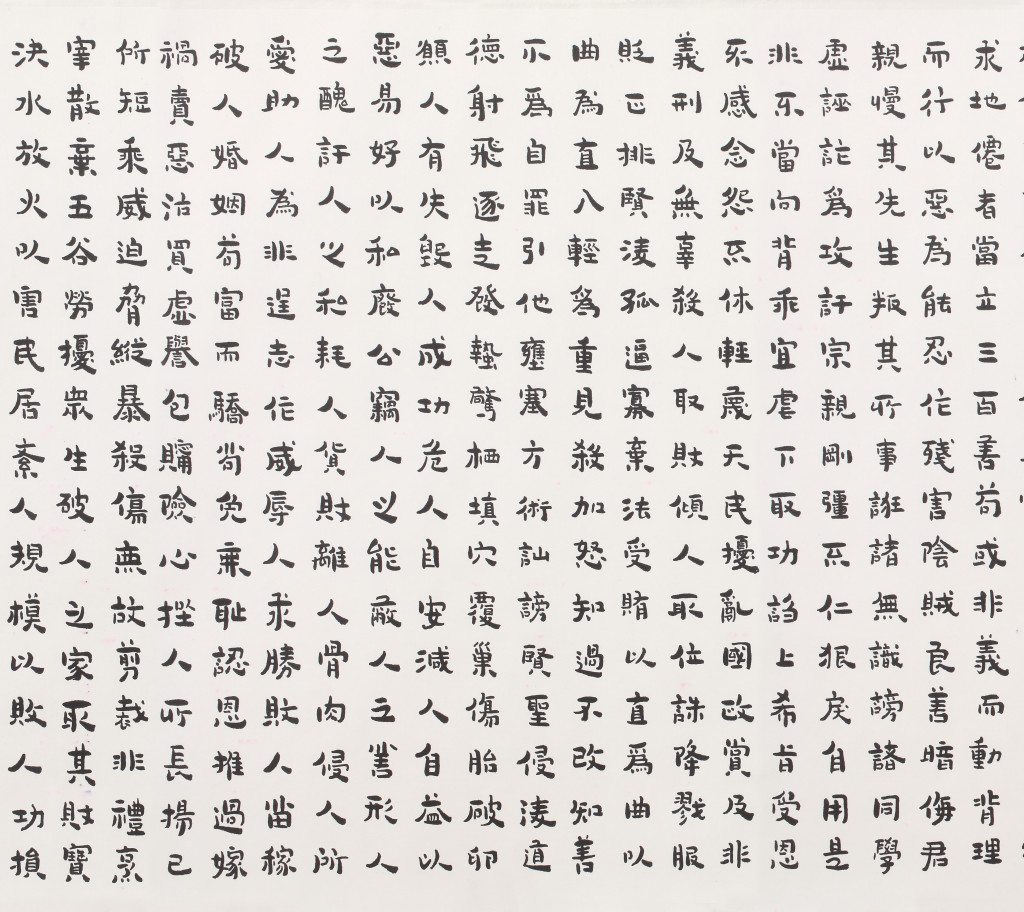 求地僊者當立三百善苟或非義而動背理
而行以惡為能忍作殘害陰賊良善暗侮君
親慢其先生叛其所事誑諸無識謗諸同學
虛誣詐爲攻訐宗親剛彊不仁狠戾自用是
非不當向背乖宜虐下取功諂上希旨受恩
不感念怨不休輕蔑天民擾亂國政賞及非
義刑及無辜殺人取財傾人取位誅降戮服
貶正排賢淩孤逼寡棄法受賂以直爲曲以
曲為直入輕爲重見殺加怒知過不改知善
不爲自罪引他壅塞方術訕謗賢聖侵淩道
德射飛逐走發蟄驚栖填穴覆巢傷胎破卵
願人有失毀人成功危人自安減人自益以
惡易好以私廢公竊人之能蔽人之善形人
之醜訐人之私耗人貨財離人骨肉侵人所
愛助人為非逞志作威辱人求勝敗人苗稼
破人婚姻苟富而驕苟免無恥認恩推過嫁
禍賣惡沽買虛譽包險心挫人所長揚己
所短乘威迫脅縱暴殺傷無故剪裁非禮烹
宰散棄五谷勞擾眾生破人之家取其財寶
決水放火以害民居紊人規模以敗人功損